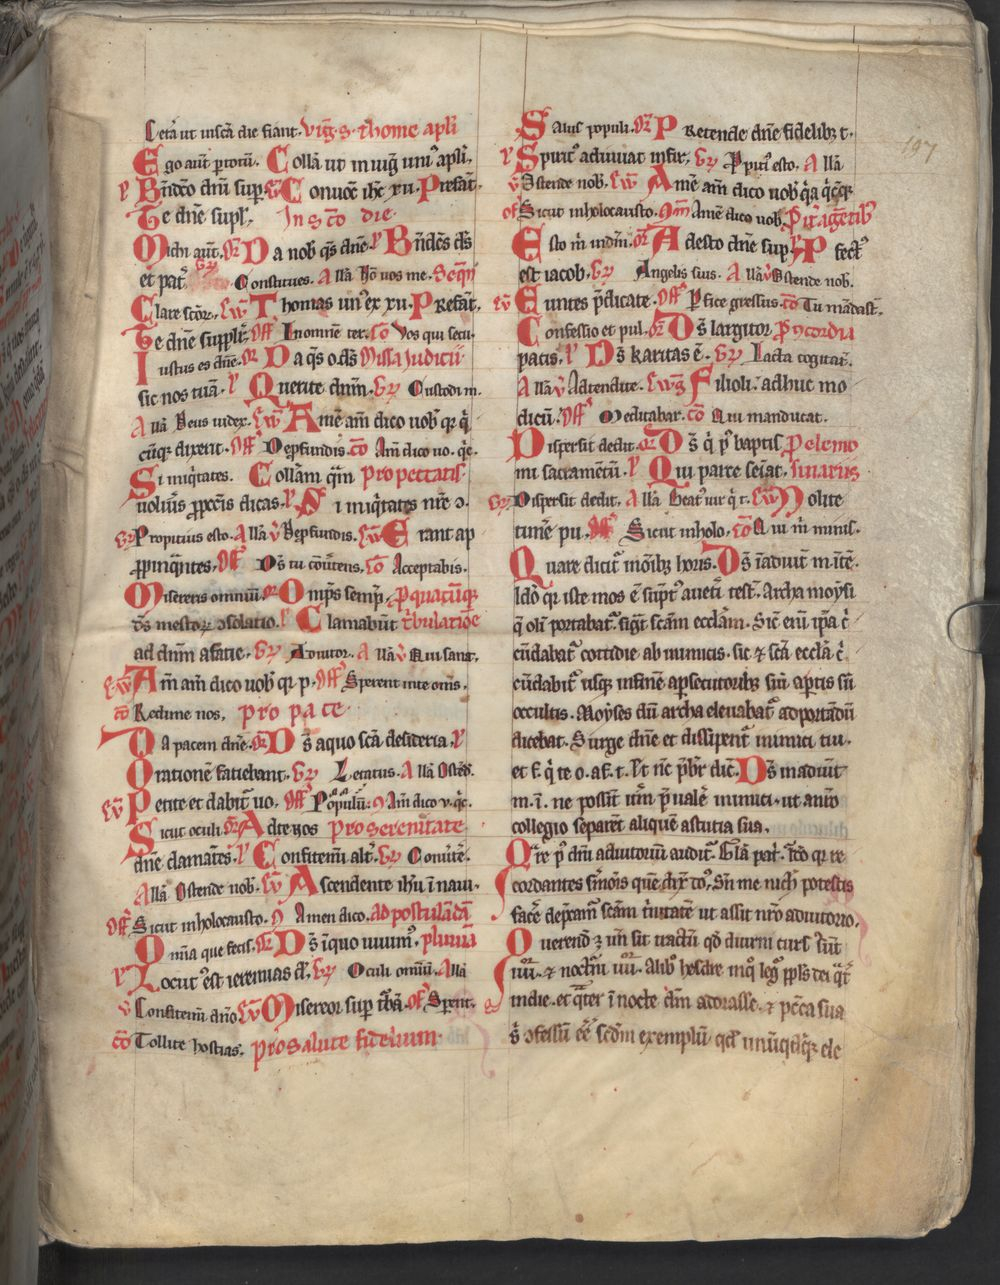 Letā ut in scā die fiant. Viḡ. s. thome apl̄i
Ego aut̄ p̄ totū. Collā ut in uiḡ uni⁹ apl̄i.
l̄ Bn̄dēo dn̄m sup. ew̄ Conuoc̄ ih̄c xii. Prefat̄.
Te dn̄e supl̄. In scō die
Michi aut̄. or̄ Da nob̄ q̄s dn̄e. l̄ Bn̄dc̄s d̄s
et pat̄. gr̄ Constitues. Allā Nō uos me. Seq̄n̄
Clare scōꝝ. ew̄ Thomas un⁹ ex xii. Prefat̄.
Te dn̄e supplr̄. off̄ In omnē ter. cō Vos qui secu.
Iustus es dn̄e. or̄ Da q̄s o. d̄s Missa Judicii
sic nos tuā. l̄ Querite dn̄m. gr̄ Custodi m.
Allā Deus iudex. ew̄ Amē am̄ dico uob̄ qr q̄
cūq̄ dixerit. off̄ De p̄fundis. cō Am̄ dico uo. q̄c.
Si iniq̄tates. Collām q̄in̄ pro peccatis
uolum̄s p̄ peccīs dicas. l̄ Si iniq̄tates nr̄e ↄ.
gr̄ Propitius esto. Allā v̄ De p̄fundis. ew̄ Erant ap
p̄pinq̄ntes. off̄ D̄s tu cōuertens. cō Acceptabis.
Misereris omniū. or̄ Omp̄s semp̄. p̄ quacūq̄
D̄s mestoꝝ ↄsolatio. l̄ Clamabūt tⁱbulatiōe
ad dn̄m a facie. gr̄ Adiutor. Allā v̄ Qui sanat.
ew̄ Am̄ am̄ dico uob̄ qr p. off̄ Sperent in te om̄s.
cō Redime nos. pro pace
Da pacem dn̄e. or̄ D̄s a quo scā desideria. l̄
Orationē faciebant. gr̄ Letatus. Allā Ostēd.
ew̄ Petite et dabit̄ uo. off̄ Populū. cō Am̄ dico v. q̄c.
Sicut oculi. or̄ Ad te nos pro serenitate
dn̄e clamātes. l̄ Confitemi alt̄. gr̄ Conu̾te.
Allā Ostende nob̄. ew̄ Ascendente ih̄u ī naui.
off̄ Sicut in holocausto. cō Amen dico. ad postulādā
Omīa que fecis. or̄ D̄s ī quo uiuim⁹. pluuiā
l̄ Locut⁹ est ieremias d̄. gr̄ Oculi omniū. Allā
v̄ Confitemī dn̄o ew̄ Misereor sup tⁱbā. off̄ Sperent.
cō Tollite hostias. pro salute fidelium
Salus populi. or̄ Pretende dn̄e fidelibꝫ t.
l̄ Spirit⁹ adiuuat infir. gr̄ Ppiti⁹ esto. Allā
v̄ Ostende nob̄. ew̄ Amē am̄ dico uob̄ q̄a q̄cq̄
off̄ Sicut in holocausto. cō Amē dico uob̄. Pit̄ agētib⁹
Esto m̄ in dm̄. or̄ Adesto dn̄e sup. l̄ Pfect⁹
est iacob. gr̄ Angelis suis. Allā v̄ Ostende nob.
ew̄ Euntes p̄dicate. off̄ Pfice gressus. cō Tu mādast̄.
Confessio et pul. or̄ D̄s largitor p̄ ↄcordia
pacis. l̄ D̄s karitas ē. gr̄ Iacta cogitat̄.
Allā v̄ Adtendite. ewḡ Filioli adhuc mo
dicū. off̄ Meditabar. cō Qui manducat.
Dispersit dedit. or̄ D̄s q̄ p⁹ baptis Pelemo
mi sacramētū. l̄ Qui parce seīat. sinariis
gr̄ Dispersit dedit. Allā Beat⁹ uir q̄ t. ew̄ Nolite
timē pu. off̄ Sicut in holo. cō Qui m̄ minis̄.
Quare dicit̄ in oīibꝫ horis. D̄s ī adiut̄ m. ītē.
Ido q̄r iste mos ē supt̄ aucti test̄. Archa moysi
q̄ olī portabat̄. figīt scām ecclām. Sic̄ enī ip̄a c̄
cūdabat̄ cottidie ab inimicis. sic ⁊ scā ecclā c̄
cūdabit̄ usq̄ in finē a p̄secutoribꝫ siū ap̄tis siū
occultis. Moyses dū archa eleuabat̄ ad portādū
dicebat. Surge dn̄e et dissipent̄ inimici tui.
et f. q̄ te o. a f. t. It̄ nc̄ p̄br dic̄. D̄s in adiut̄
m. ī. ne possit uīm p̄ualē inimici. ut a nr̄o
collegio separet aliquē astutia sua.
Qr̄e p⁹ dn̄i adiutoriū audit̄. Glā pat̄. Ido qr re
cordantes sⁱmōis quē dix̄ do⁹. Sn̄ me nich̄ potestis
facē dep̄cam̄ scām tⁱnitatē ut assit nr̄o adiutorio.
Querend̄ ꝫ un̄ sit tractū qd̄ diurni curs⁹ sūt
iiii. ⁊ noct̄ni iiii. Alib̄ hesdre inq̄ leg̾ ppl̄s dei q̄t̄
in die. et q̄ter ī nocte dn̄m adorasse. ⁊ pēca sua
s̄ ↄfessū eē scd̄m exemplū. qd̄ unūq̄dq̄ ele
197